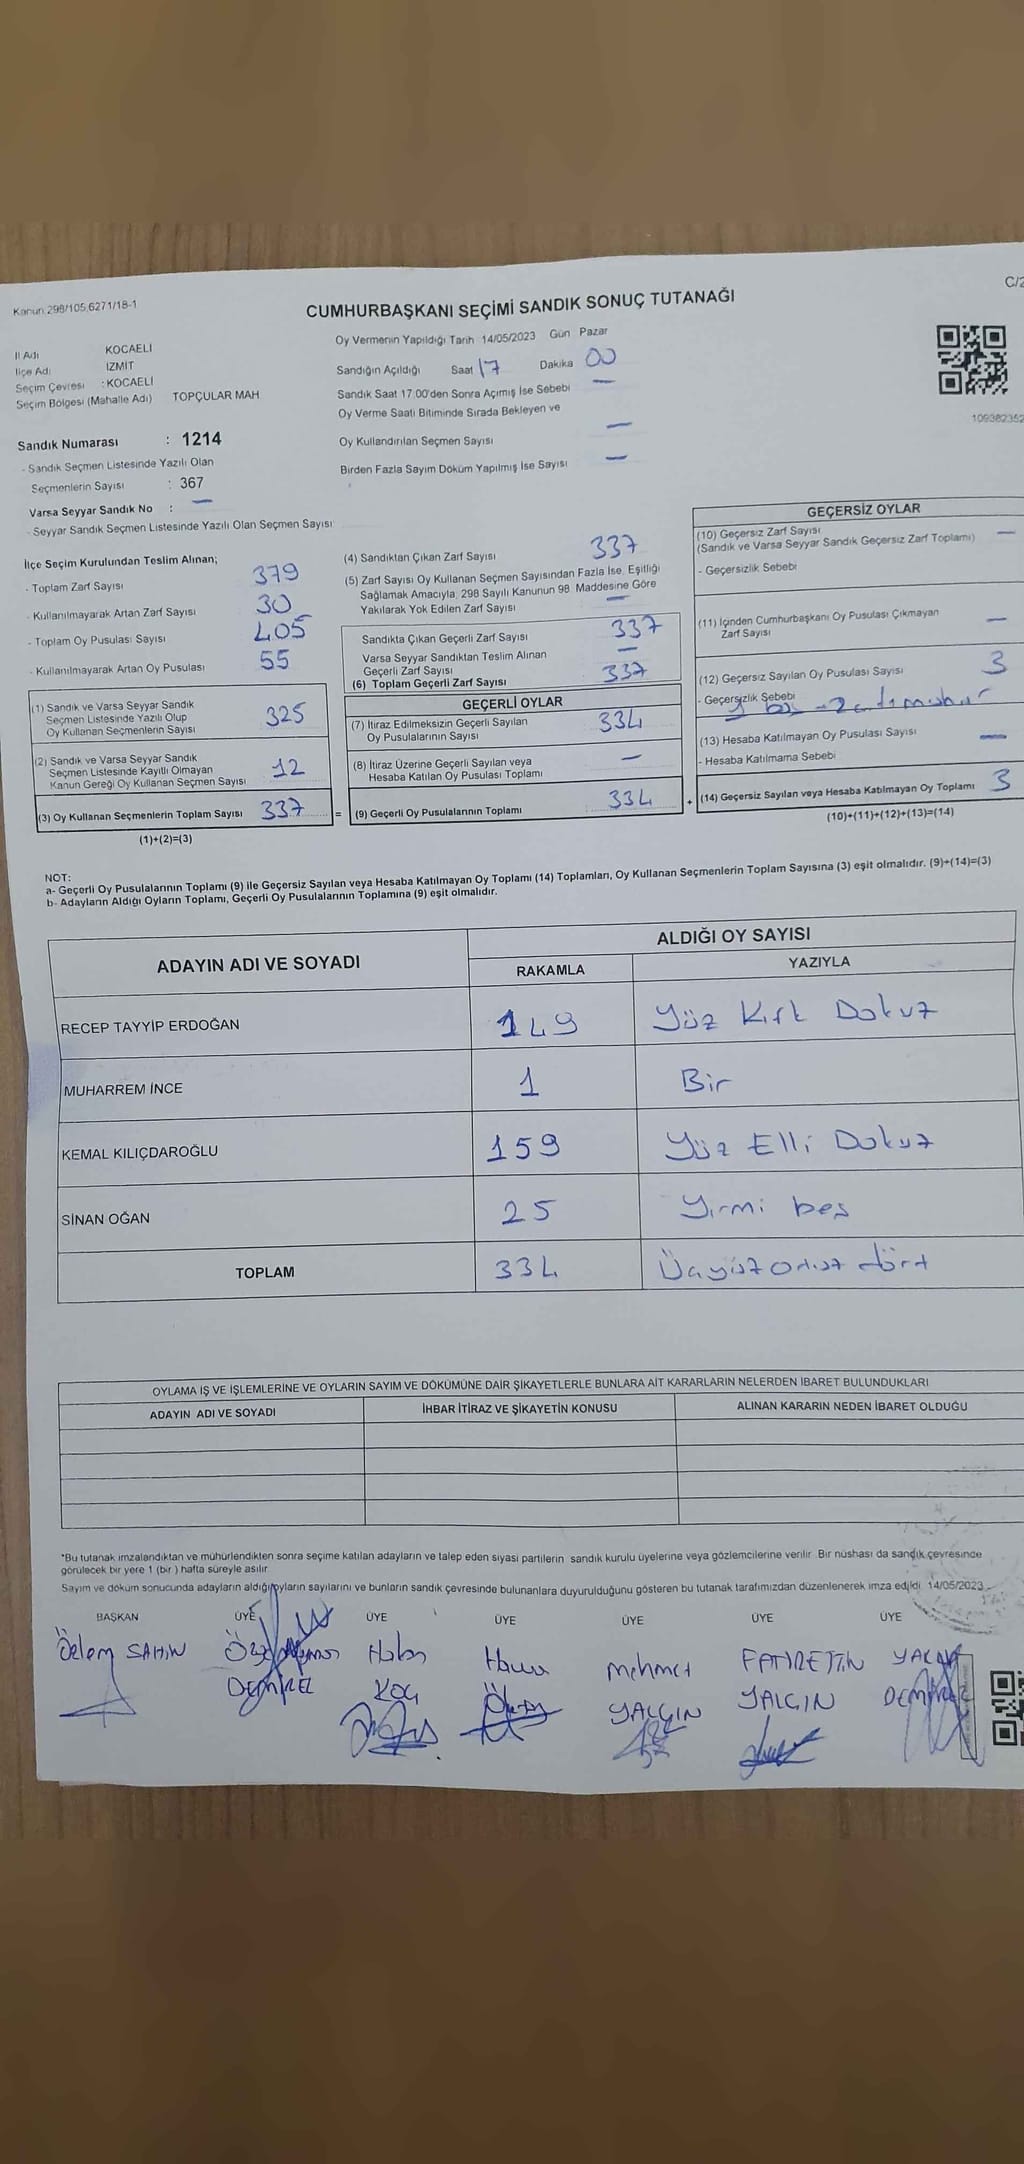 Kanun:298/105,6271/18-1
C/2
CUMHURBAŞKANI SEÇİMİ SANDIK SONUÇ TUTANAĞI
İl Adı KOCAELİ
İlçe Adı İZMİT
Seçim Çevresi : KOCAELİ
Seçim Bölgesi (Mahalle Adı) TOPÇULAR MAH
Oy Vermenin Yapıldığı Tarih 14/05/2023 Gün Pazar
Sandığın Açıldığı Saat 17 Dakika 00
Sandık Saat 17:00'den Sonra Açımış İse Sebebi —
Oy Verme Saati Bitiminde Sırada Bekleyen ve
Oy Kullandırılan Seçmen Sayısı —
Birden Fazla Sayım Döküm Yapılmış İse Sayısı —
109382352
Sandık Numarası : 1214
- Sandık Seçmen Listesinde Yazılı Olan
Seçmenlerin Sayısı : 367
Varsa Seyyar Sandık No : —
- Seyyar Sandık Seçmen Listesinde Yazılı Olan Seçmen Sayısı
İlçe Seçim Kurulundan Teslim Alınan;
- Toplam Zarf Sayısı 379
- Kullanılmayarak Artan Zarf Sayısı 30
- Toplam Oy Pusulası Sayısı 405
- Kullanılmayarak Artan Oy Pusulası 55
(1) Sandık ve Varsa Seyyar Sandık
Seçmen Listesinde Yazılı Olup
Oy Kullanan Seçmenlerin Sayısı 325
(2) Sandık ve Varsa Seyyar Sandık
Seçmen Listesinde Kayıtlı Olmayan
Kanun Gereği Oy Kullanan Seçmen Sayısı 12
(3) Oy Kullanan Seçmenlerin Toplam Sayısı 337
(1)+(2)=(3)
(4) Sandıktan Çıkan Zarf Sayısı 337
(5) Zarf Sayısı Oy Kullanan Seçmen Sayısından Fazla İse, Eşitliği
Sağlamak Amacıyla, 298 Sayılı Kanunun 98. Maddesine Göre
Yakılarak Yok Edilen Zarf Sayısı —
Sandıkta Çıkan Geçerli Zarf Sayısı 337
Varsa Seyyar Sandıktan Teslim Alınan
Geçerli Zarf Sayısı —
(6) Toplam Geçerli Zarf Sayısı 337
GEÇERLİ OYLAR
(7) İtiraz Edilmeksizin Geçerli Sayılan
Oy Pusulalarının Sayısı 334
(8) İtiraz Üzerine Geçerli Sayılan veya
Hesaba Katılan Oy Pusulası Toplamı —
= (9) Geçerli Oy Pusulalarının Toplamı 334
GEÇERSİZ OYLAR
(10) Geçersiz Zarf Sayısı
(Sandık ve Varsa Seyyar Sandık Geçersiz Zarf Toplamı) —
- Geçersizlik Sebebi
(11) İçinden Cumhurbaşkanı Oy Pusulası Çıkmayan
Zarf Sayısı —
(12) Geçersiz Sayılan Oy Pusulası Sayısı 3
- Geçersizlik Sebebi
(13) Hesaba Katılmayan Oy Pusulası Sayısı —
- Hesaba Katılmama Sebebi
+ (14) Geçersiz Sayılan veya Hesaba Katılmayan Oy Toplamı 3
(10)+(11)+(12)+(13)=(14)
NOT:
a- Geçerli Oy Pusulalarının Toplamı (9) ile Geçersiz Sayılan veya Hesaba Katılmayan Oy Toplamı (14) Toplamları, Oy Kullanan Seçmenlerin Toplam Sayısına (3) eşit olmalıdır. (9)+(14)=(3)
b- Adayların Aldığı Oyların Toplamı, Geçerli Oy Pusulalarının Toplamına (9) eşit olmalıdır.
ADAYIN ADI VE SOYADI ALDIĞI OY SAYISI
RAKAMLA YAZIYLA
RECEP TAYYİP ERDOĞAN 149 Yüz Kırk Dokuz
MUHARREM İNCE 1 Bir
KEMAL KILIÇDAROĞLU 159 Yüz Elli Dokuz
SİNAN OĞAN 25 Yirmi beş
TOPLAM 334 Üçyüz otuz dört
OYLAMA İŞ VE İŞLEMLERİNE VE OYLARIN SAYIM VE DÖKÜMÜNE DAİR ŞİKAYETLERLE BUNLARA AİT KARARLARIN NELERDEN İBARET BULUNDUKLARI
ADAYIN ADI VE SOYADI İHBAR İTİRAZ VE ŞİKAYETİN KONUSU ALINAN KARARIN NEDEN İBARET OLDUĞU
*Bu tutanak imzalandıktan ve mühürlendikten sonra seçime katılan adayların ve talep eden siyasi partilerin sandık kurulu üyelerine veya gözlemcilerine verilir. Bir nüshası da sandık çevresinde
görülecek bir yere 1 (bir) hafta süreyle asılır.
Sayım ve döküm sonucunda adayların aldığı oyların sayılarını ve bunların sandık çevresinde bulunanlara duyurulduğunu gösteren bu tutanak tarafımızdan düzenlenerek imza edildi. 14/05/2023
BAŞKAN ÜYE ÜYE ÜYE ÜYE ÜYE ÜYE
Özlem ŞAHİN Hava Mehmet FAHRETTİN
DEMİREL KOÇ YALÇIN YALÇIN